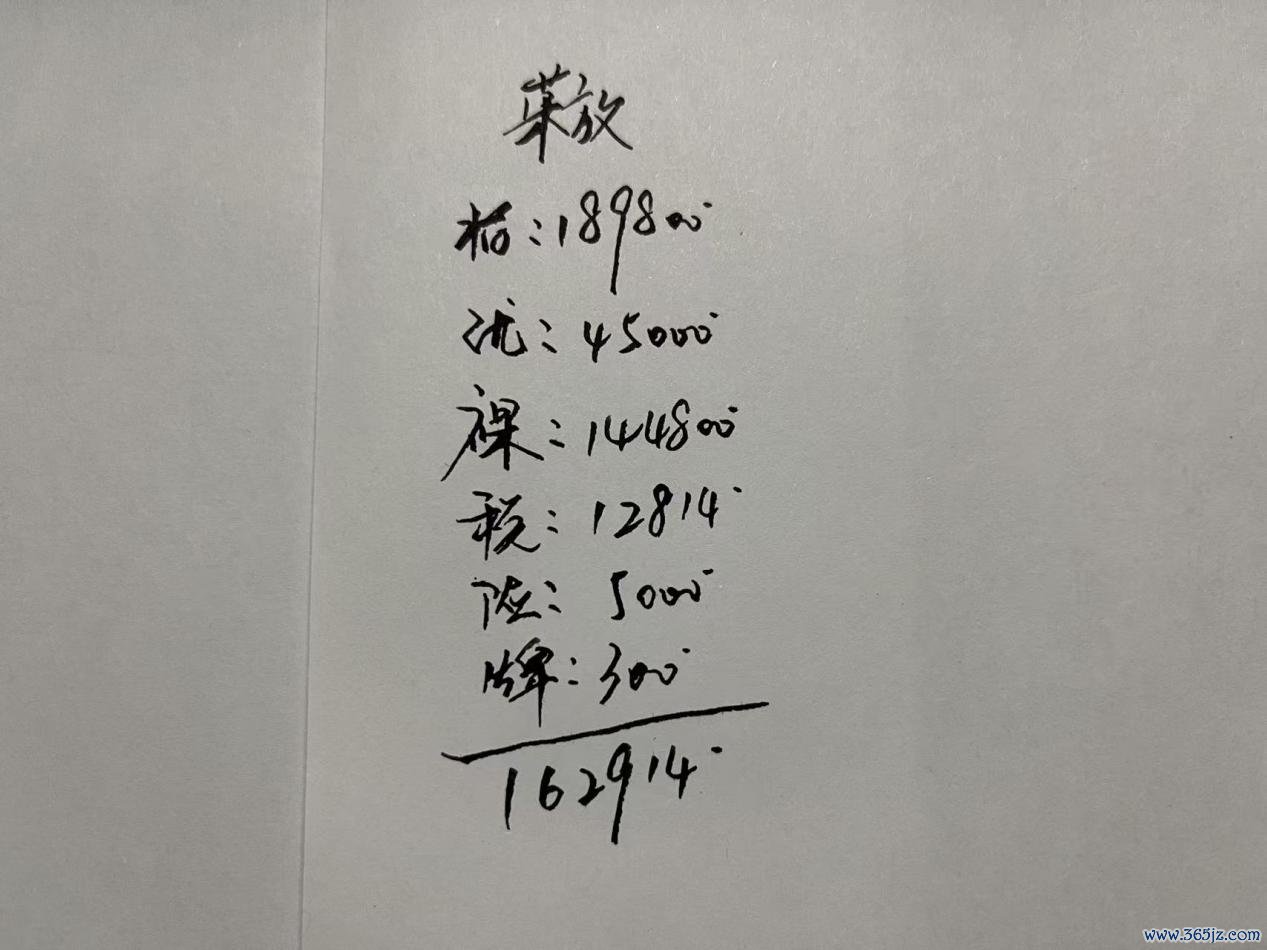 莱放
指: 189800
优: 45000
裸: 144800
税: 12814
险: 5000
牌: 300
162914
www.365jz.com